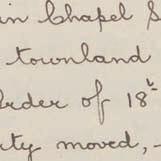 in Chapel S
townland
order of 18
ty moved,